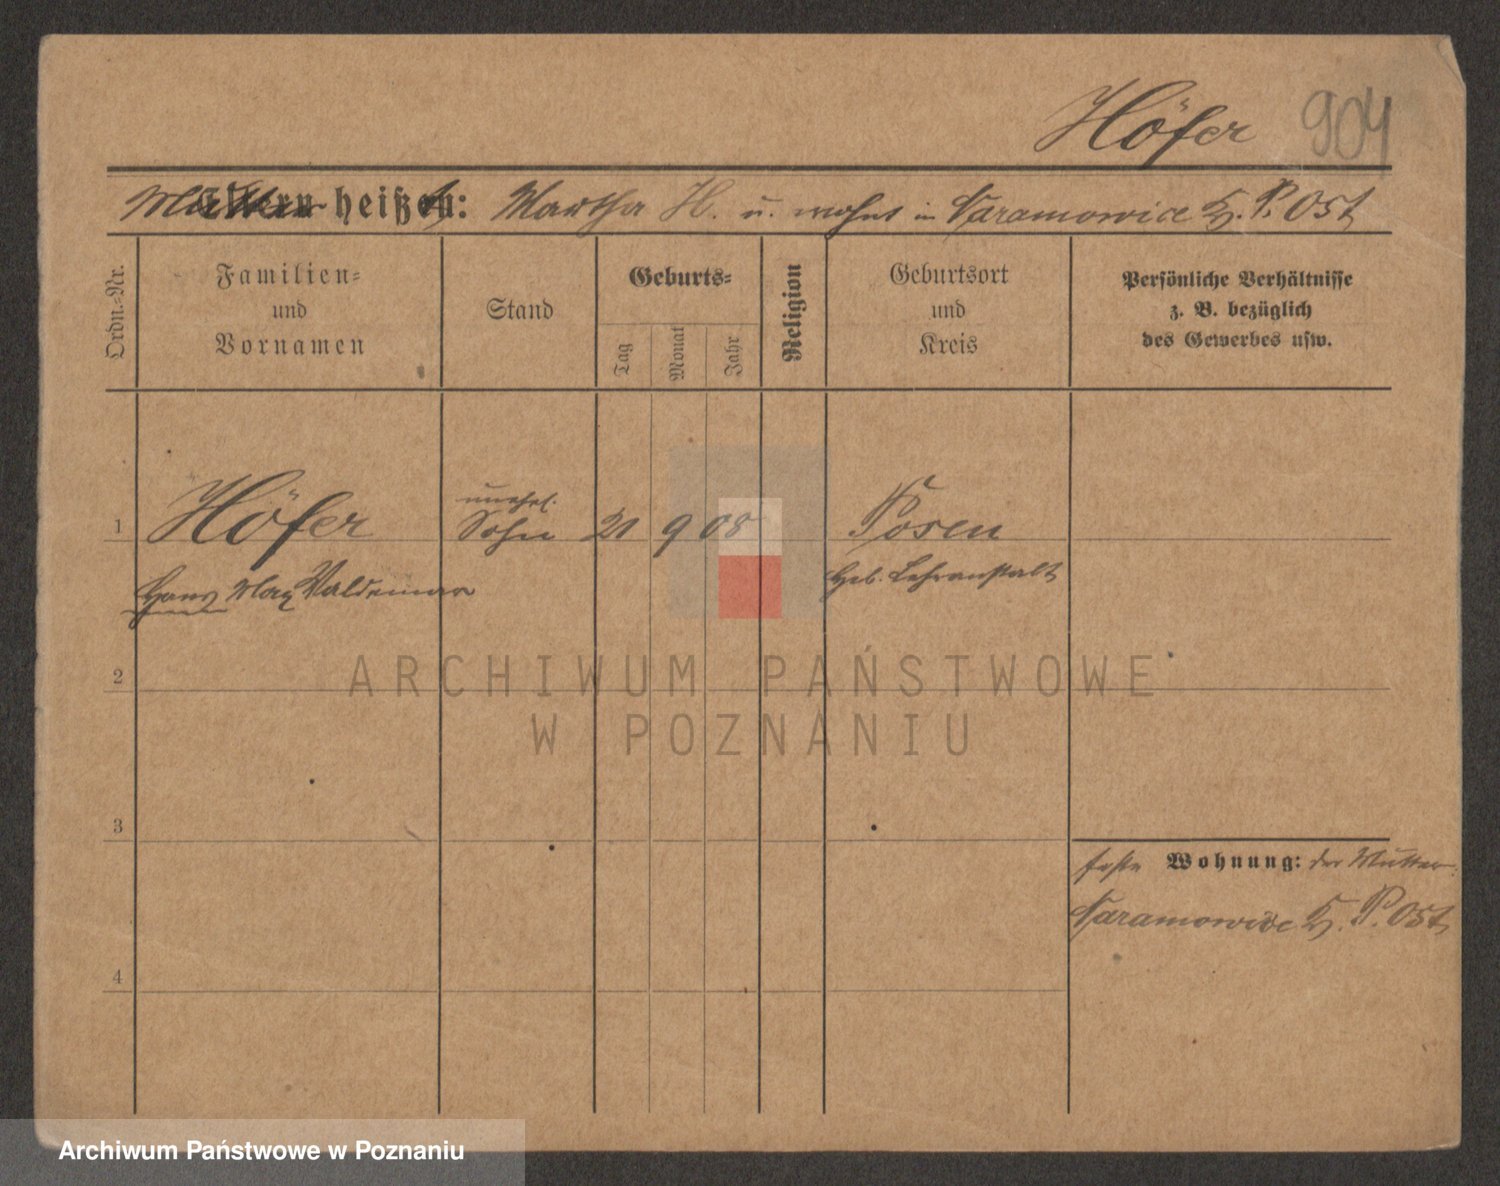 Höfer 904
Mutter heißt: Martha H. u. wohnt in Naramowice K. P. Ost
Ordn.=Nr.
Familien=
und
Vornamen
Stand
Geburts=
Tag
Monat
Jahr
Religion
Geburtsort
und
Kreis
Persönliche Verhältnisse
z. B. bezüglich
des Gewerbes usw.
unehel.
1 Höfer Sohn 21 9 08 Posen
Hans Max Waldemar Heb. Lehranstalt
2
ARCHIWUM PAŃSTWOWE
W POZNANIU
3
feste Wohnung: der Mutter:
Naramowice K. P. Ost
4
Archiwum Państwowe w Poznaniu